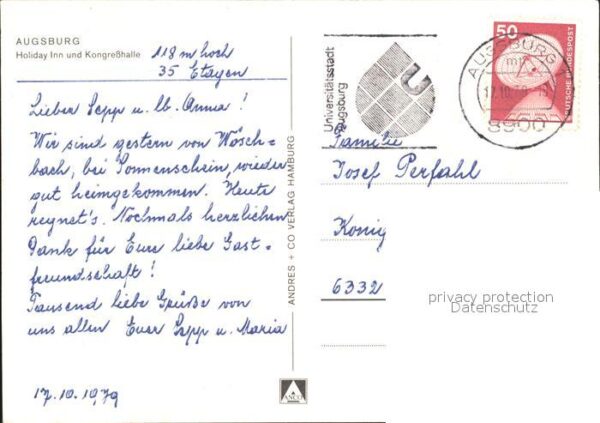 AUGSBURG
Holiday Inn und Kongreßhalle
118 m hoch
35 Etagen
Lieber Sepp u. lb. Anna!
Wir sind gestern von Wösch-
bach, bei Sonnenschein, wieder
gut heimgekommen. Heute
regnet's. Nochmals herzlichen
Dank für Eure liebe Gast-
freundschaft!
Tausend liebe Grüße von
uns allen Euer Sepp u. Maria
17.10.1979
ANDRES + CO VERLAG HAMBURG
ANCO
Universitätsstadt
Augsburg
AUGSBURG
8900
50
DEUTSCHE BUNDESPOST
Familie
Josef Perfahl
König
6332
privacy protection
Datenschutz